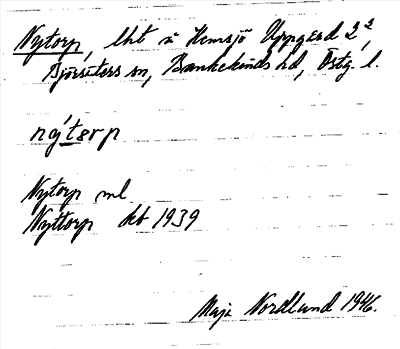 Nytorp, lht u Hemsjö Uppgård 2²,
Björsäters sn, Bankekinds hd, Östg. l.
nýtɷrp
Nytorp ml
Nyttorp kb 1939
Maja Nordlund 1946.